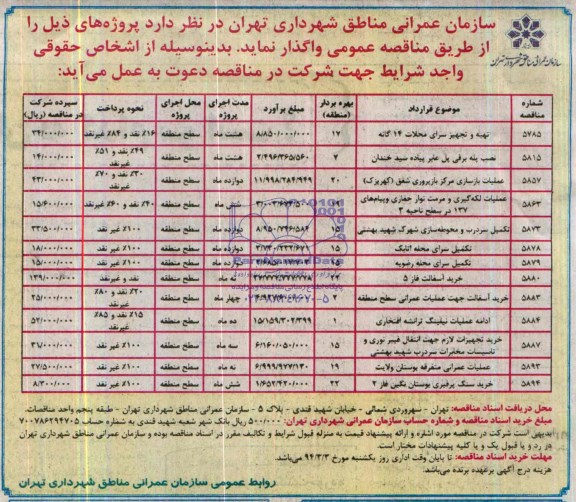 سازمان عمرانی مناطق شهرداری تهران در نظر دارد پروژه‌های ذیل را
از طریق مناقصه عمومی واگذار نماید. بدینوسیله از اشخاص حقوقی
واجد شرایط جهت شرکت در مناقصه دعوت به عمل می‌آید:
سازمان عمرانی مناطق شهرداری تهران
شماره مناقصه موضوع قرارداد بهره بردار (منطقه) مبلغ برآورد مدت اجرای پروژه محل اجرای پروژه نحوه پرداخت سپرده شرکت در مناقصه (ریال)
۵۷۸۵ تهیه و تجهیز سرای محلات ۱۴ گانه ۱۷ ۸/۸۵۰/۰۰۰/۰۰۰ هشت ماه سطح منطقه ۱۶٪ نقد و ۸۴٪ غیرنقد ۳۴/۰۰۰/۰۰۰
۵۸۱۵ نصب پله برقی پل عابر پیاده سید خندان ۷ ۲/۴۹۶/۳۶۵/۵۶۰ هشت ماه سطح منطقه ۴۹٪ نقد و ۵۱٪ غیرنقد ۱۴/۰۰۰/۰۰۰
۵۸۵۷ عملیات بازسازی مرکز بازپروری شفق (کهریزک) ۲۰ ۱۱/۹۹۸/۲۸۴/۹۴۹ دوازده ماه سطح منطقه ۳۰٪ نقد و ۷۰٪ غیرنقد ۴۳/۰۰۰/۰۰۰
۵۸۶۳ عملیات لکه‌گیری و مرمت نوار حفاری وپیام‌های ۱۳۷ در سطح ناحیه ۳ سطح منطقه ۴۰٪ نقد و ۶۰٪ غیرنقد ۱۵/۶۰۰/۰۰۰
۵۸۷۳ تکمیل سردرب و محوطه‌سازی شهرک شهید بهشتی ۱۵ دوازده ماه سطح منطقه ۱۰۰٪ غیر نقد ۳۳/۵۰۰/۰۰۰
۵۸۷۸ تکمیل سرای محله اتابک ۱۵ دوازده ماه سطح منطقه ۱۰۰٪ غیر نقد ۱۸/۰۰۰/۰۰۰
۵۸۷۹ تکمیل سرای محله رضویه ۱۵ دوازده ماه سطح منطقه ۱۰۰٪ غیر نقد ۱۵/۰۰۰/۰۰۰
۵۸۸۰ خرید آسفالت فاز ۵ ۲۲ نه ماه سطح منطقه نقد و غیرنقد ۱۳۹/۰۰۰/۰۰۰
۵۸۸۳ خرید آسفالت جهت عملیات عمرانی سطح منطقه ۲ چهار ماه سطح منطقه ۲۰٪ نقد و ۸۰٪ غیرنقد ۲۵/۰۰۰/۰۰۰
۵۸۸۴ ادامه عملیات نیلینگ ترانشه افتخاری ۱ ۱۵/۱۵۹/۳۰۲/۳۹۹ ده ماه سطح منطقه ۱۵٪ نقد و ۸۵٪ غیرنقد ۵۳/۰۰۰/۰۰۰
۵۸۸۷ خرید تجهیزات لازم جهت انتقال فیبر نوری و تاسیسات مخابرات سردرب شهید بهشتی ۱۵ ۶/۱۶۰/۰۵۰/۰۰۰ سه ماه سطح منطقه ۱۰۰٪ غیر نقد ۳۱/۰۰۰/۰۰۰
۵۸۹۳ عملیات عمرانی متفرقه بوستان ولایت ۱۹ ۶/۹۹۹/۹۷۷/۱۳۰ نه ماه سطح منطقه ۱۰۰٪ غیر نقد ۲۷/۵۰۰/۰۰۰
۵۸۹۴ خرید سنگ پرفیری بوستان نگین فاز ۲ ۲۲ ۱/۶۵۲/۴۲۰/۰۰۰ شش ماه سطح منطقه ۱۰۰٪ غیر نقد ۸/۳۰۰/۰۰۰
محل دریافت اسناد مناقصه: تهران - سهروردی شمالی - خیابان شهید قندی - پلاک ۵ - سازمان عمرانی مناطق شهرداری تهران - طبقه پنجم واحد مناقصات.
مبلغ خرید اسناد مناقصه و شماره حساب سازمان عمرانی مناطق شهرداری تهران: ۵۰۰/۰۰۰ ریال بانک شهر شعبه شهید قندی به شماره حساب ۷۰۰۷۸۶۲۹۴۷۰۵
بدیهی است شرکت در مناقصه مورد اشاره و ارائه پیشنهاد قیمت به منزله قبول شرایط و تکالیف مقرر در اسناد مناقصه بوده و سازمان عمرانی مناطق شهرداری تهران
در رد و یا قبول یک و یا کلیه پیشنهادات مختار است.
مهلت خرید اسناد مناقصه: تا پایان وقت اداری روز یکشنبه مورخ ۹۴/۳/۳ می‌باشد.
هزینه درج آگهی برعهده برنده می‌باشد.
روابط عمومی سازمان عمرانی مناطق شهرداری تهران